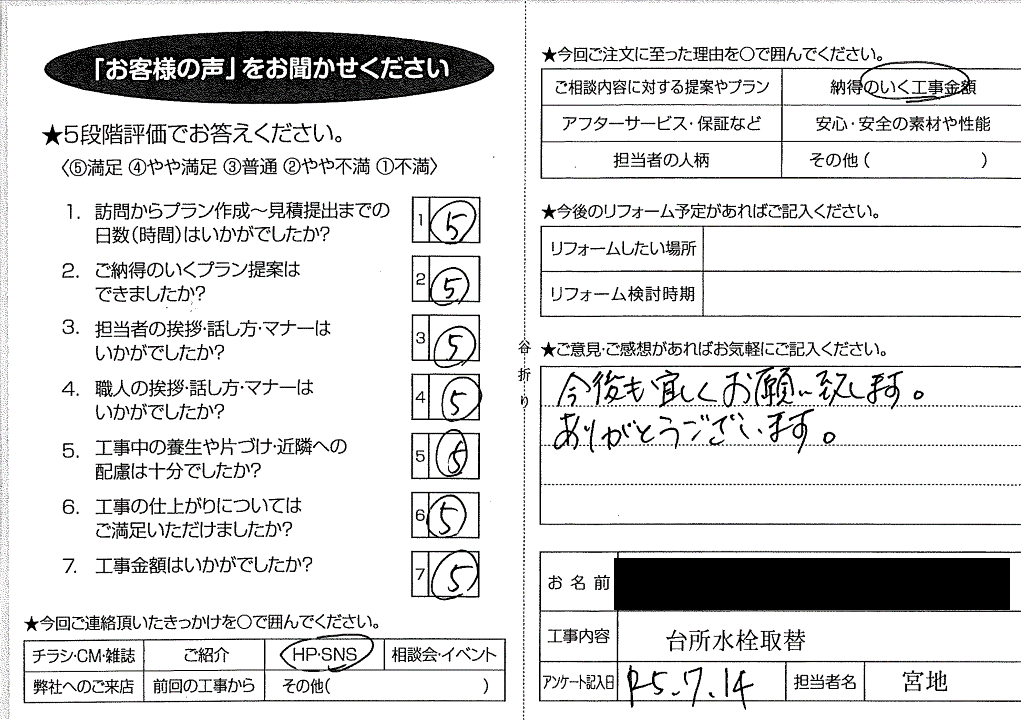 「お客様の声」をお聞かせください
★5段階評価でお答えください。
〈⑤満足 ④やや満足 ③普通 ②やや不満 ①不満〉
1. 訪問からプラン作成～見積提出までの
日数(時間)はいかがでしたか?
1 5
2. ご納得のいくプラン提案は
できましたか?
2 5
3. 担当者の挨拶・話し方・マナーは
いかがでしたか?
3 5
4. 職人の挨拶・話し方・マナーは
いかがでしたか?
4 5
5. 工事中の養生や片づけ・近隣への
配慮は十分でしたか?
5 5
6. 工事の仕上がりについては
ご満足いただけましたか?
6 5
7. 工事金額はいかがでしたか?
7 5
★今回ご連絡頂いたきっかけを○で囲んでください。
チラシ・CM・雑誌 ご紹介 HP・SNS 相談会・イベント
弊社へのご来店 前回の工事から その他( )
谷折り
★今回ご注文に至った理由を○で囲んでください。
ご相談内容に対する提案やプラン 納得のいく工事金額
アフターサービス・保証など 安心・安全の素材や性能
担当者の人柄 その他( )
★今後のリフォーム予定があればご記入ください。
リフォームしたい場所
リフォーム検討時期
★ご意見・ご感想があればお気軽にご記入ください。
今後も宜しくお願い致します。
ありがとうございます。
お名前
工事内容 台所水栓取替
アンケート記入日 R5.7.14 担当者名 宮地